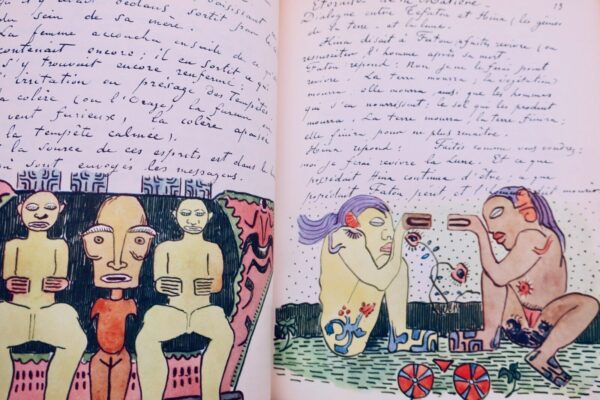 sein de sa mère.
La femme accoucha ensuite de ce qu'
contenait encore: il en sortit ce qui
s'y trouvait encore renfermé:
L'irritation ou presage des tempêtes
la colère (ou l'Orage) la fureur
vent furieux, la colère apaisée
la tempête calmée).
la source de ces esprits est dans le
sont envoyés les messagers.
Eternité de la Matière.
13
Dialogue entre Tefatou et Hina (les génies
de la terre et la lune.
Hina disait à Fatou: faites revivre (ou
ressusciter l'homme après sa mort.
Fatou repond: Non je ne le ferai point
revivre. La terre mourra; la végétation
mourra; elle mourra, ainsi que les hommes
qui s'en nourrissent; le sol qui les produit
mourra. La terre mourra, la terre finira;
elle finira pour ne plus renaître.
Hina repond: Faites comme vous voudrez;
moi je ferai revivre la Lune. Et ce que
possédait Hina continua d'être, ce que
possédait Fatou périt, et l'homme dut mourir